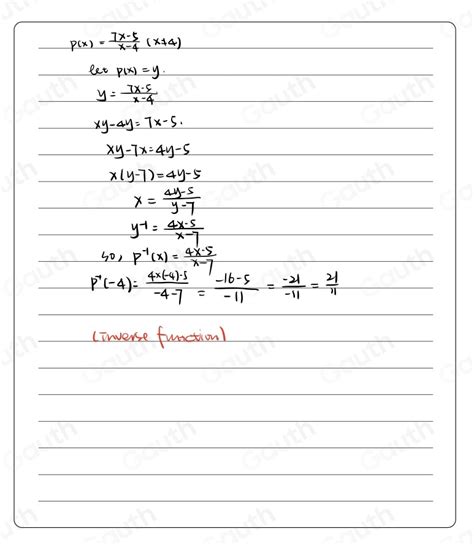 p(x) = \frac{7x-5}{x-4} (x≠4)
let p(x) = y.
y = \frac{7x-5}{x-4}
xy-4y=7x-5.
xy-7x=4y-5
x(y-7)=4y-5
x = \frac{4y-5}{y-7}
y^{-1} = \frac{4x-5}{x-7}
so, p^{-1}(x) = \frac{4x-5}{x-7}
p^{-1}(-4) = \frac{4×(-4)-5}{-4-7} = \frac{-16-5}{-11} = \frac{-21}{-11} = \frac{21}{11}
(inverse function)
Gauth